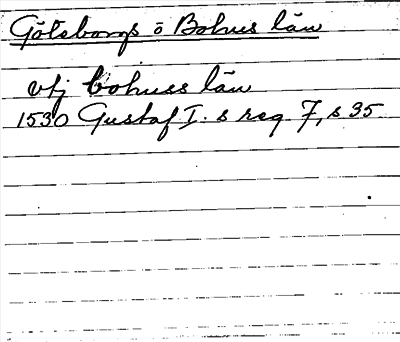 Göteborgs o Bohus län
vtj bohuss län
1530 Gustaf I. s reg 7, s 35